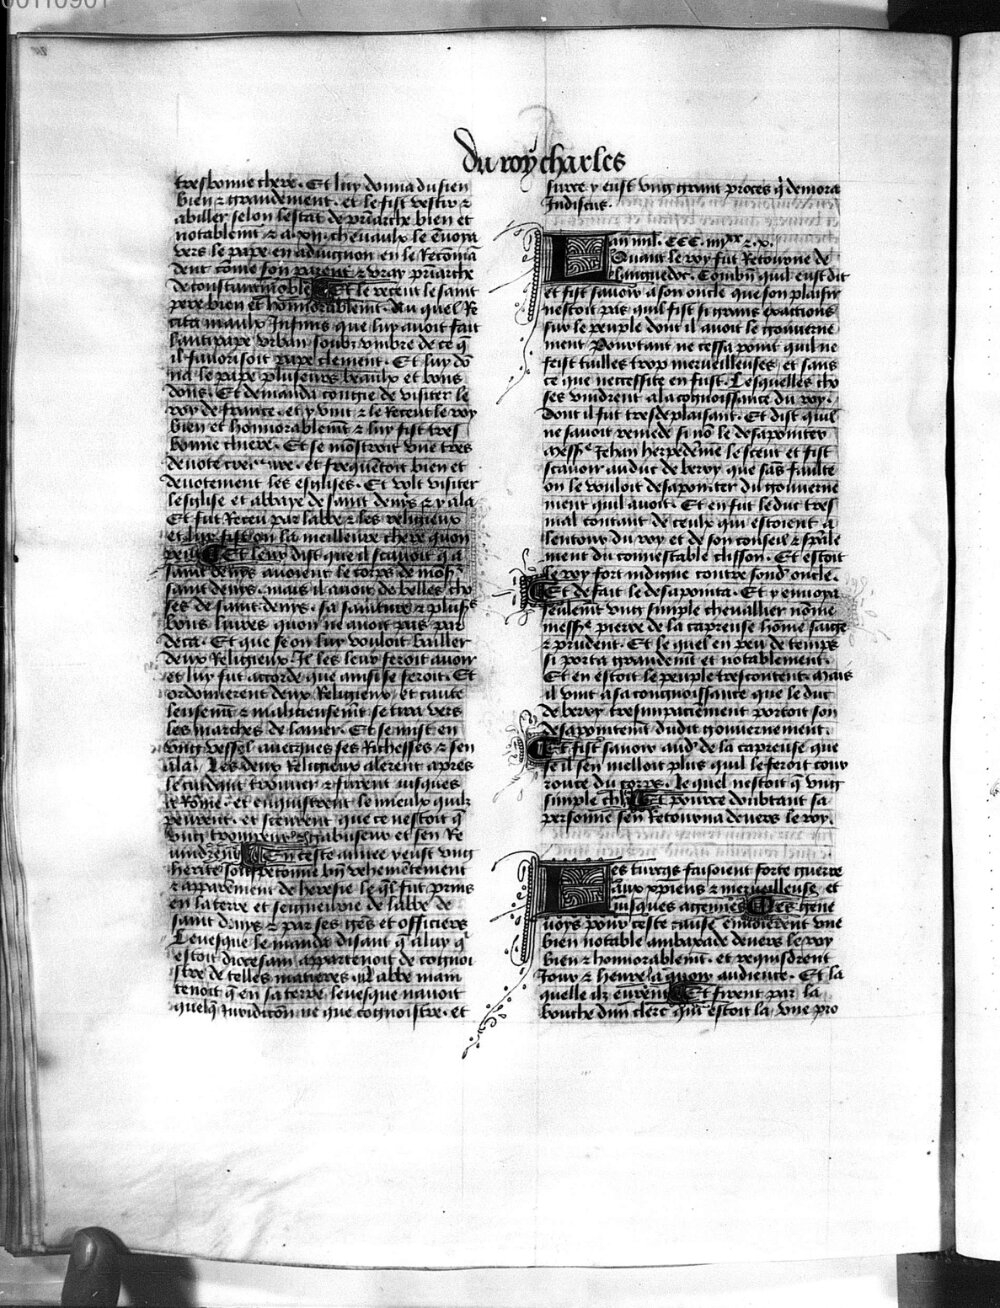 00110901
du roy charles
tresbonne chere. Et luy donna du sien
bien & grandement. et le fist vestir &
abiller selon lestat de priarche bien et
notablemt & a .xii. chevaulx le evoya
vers le pape en advignon en le Recoma
dent come son parent & vray priarche
de constantinoble Et le receut le saint
pere bien et honnorablemt. Au quel Re
cita maulx Infinis que luy avoit fait
lantipape urban soubz umbre de ce q
il favorisoit pape clement. Et luy do
na le pape pluseurs beaulx et bons
dons. Et demanda congie de visiter le
roy de france. et y vint & le Receut le roy
bien et honnorablemt & luy fist tres
bonne chiere. Et se mostroit une tres
devote creature. et frequetoit bien et
devotement les esglises. Et volt visiter
lesglise et abbaye de saint denis & y ala
Et fut Receu par labbe & les religieux
et luy fist on la meilleure chere quon
peust Et leur dist que il scavoit q a
saint denys avoient le corps de mosr
saint denys. mais il avoit de belles cho
ses de saint denys. sa sainture & pluss
bons livres quon ne avoit pas par
deca. Et que se on luy vouloit bailler
deux Religieux. Je les leur feroit avoir
et luy fut accorde que ainsi se feroit. Et
ordonnerent deux Religieux. et caute
leusemt & malicieusemt se tira vers
les marches de la mer. Et se mist en
ung vessel avecques ses Richesses & sen
ala. Les deux Religieux alerent apres
le cuidant trouver & furent jusques
a Rome. et enquistrent le mieulx quilz
peurent. et sceurent que ce nestoit q
ung trompeur & abuseur et sen Re
vindrent En ceste annee y eust ung
herite soustenoit bn vehementement
& apparement de heresie le ql fut prins
en la terre et seigneurie de labbe de
saint denys & par ses ges et officiers
Levesque le manda disant q a luy q
estoit diocesain appartenoit de cognoi
stre de telles matieres. Labbe main
tenoit q en sa terre levesque navoit
quelq Juridicion ne que cognoistre. et
surce y eust ung grant proces q demora
Indiscus.
Lan mil. CCC. iiijxx & .x.
Quant le roy fut Retourne de
languedoc. Combn quil eust dit
et fist savoir a son oncle que son plaisir
nestoit pas quil fist si grans exactions
sur le peuple dont il avoit le gouverne
ment Pourtant ne cessa point quil ne
feist tailles trop merveilleuses et sans
ce que necessite en fust. Lesquelles cho
ses vindrent a la cognoissance du roy.
Dont il fut tresdeplaisant. Et dist quil
ne savoit remede si no le desapointer
Messre Jehan herpedeine le sceut et fist
scavoir au duc de berry que sas faulte
on le vouloit desapointer du gouverne
ment quil avoit. Et en fut le duc tres
mal contant de ceulx qui estoient a
lentour du roy et de son conseil & spale
ment du connestable clisson. Et estoit
le roy fort indigne contre sond oncle.
Et de fait le desapointa. Et y envoya
seulemt ung simple chevallier nome
messre pierre de la capreuse home saige
& prudent. Et le quel en peu de temps
si porta grandemt et notablement.
Et en estoit le peuple trescontent. Mais
il vint a sa congnoissance que le duc
de berry tresimpaciement portoit son
desapointemt dudit gouvernement.
Et fist savoir aud de la capreuse que
se il sen melloit plus quil le feroit cour
rouce du corps. Le quel nestoit q ung
simple chlr Et pource doubtant sa
personne sen Retourna devers le roy.
Les turcqs faisoient forte guerre
aux xpiens & merveilleuse et
jusques a gennes Les gene
voys pour ceste cause envoierent une
bien notable ambaxade devers le roy
bien & honnorablemt. et requisdrent
Jour & heure a quoir audience. Et la
quelle ilz eurent Et firent par la
bouche dun clerc qui estoit la une pro